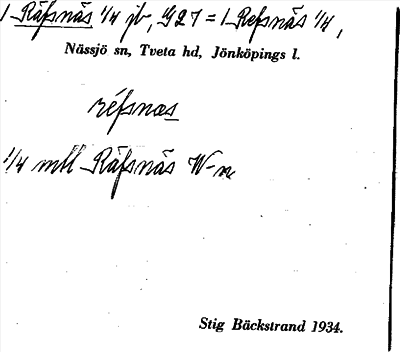 1 Räfsnäs 1/4 jb, G27 = 1 Refsnäs 1/4,
Nässjö sn, Tveta hd, Jönköpings l.
réfsnas
1/4 mtl Räfsnäs W-n
Stig Bäckstrand 1934.